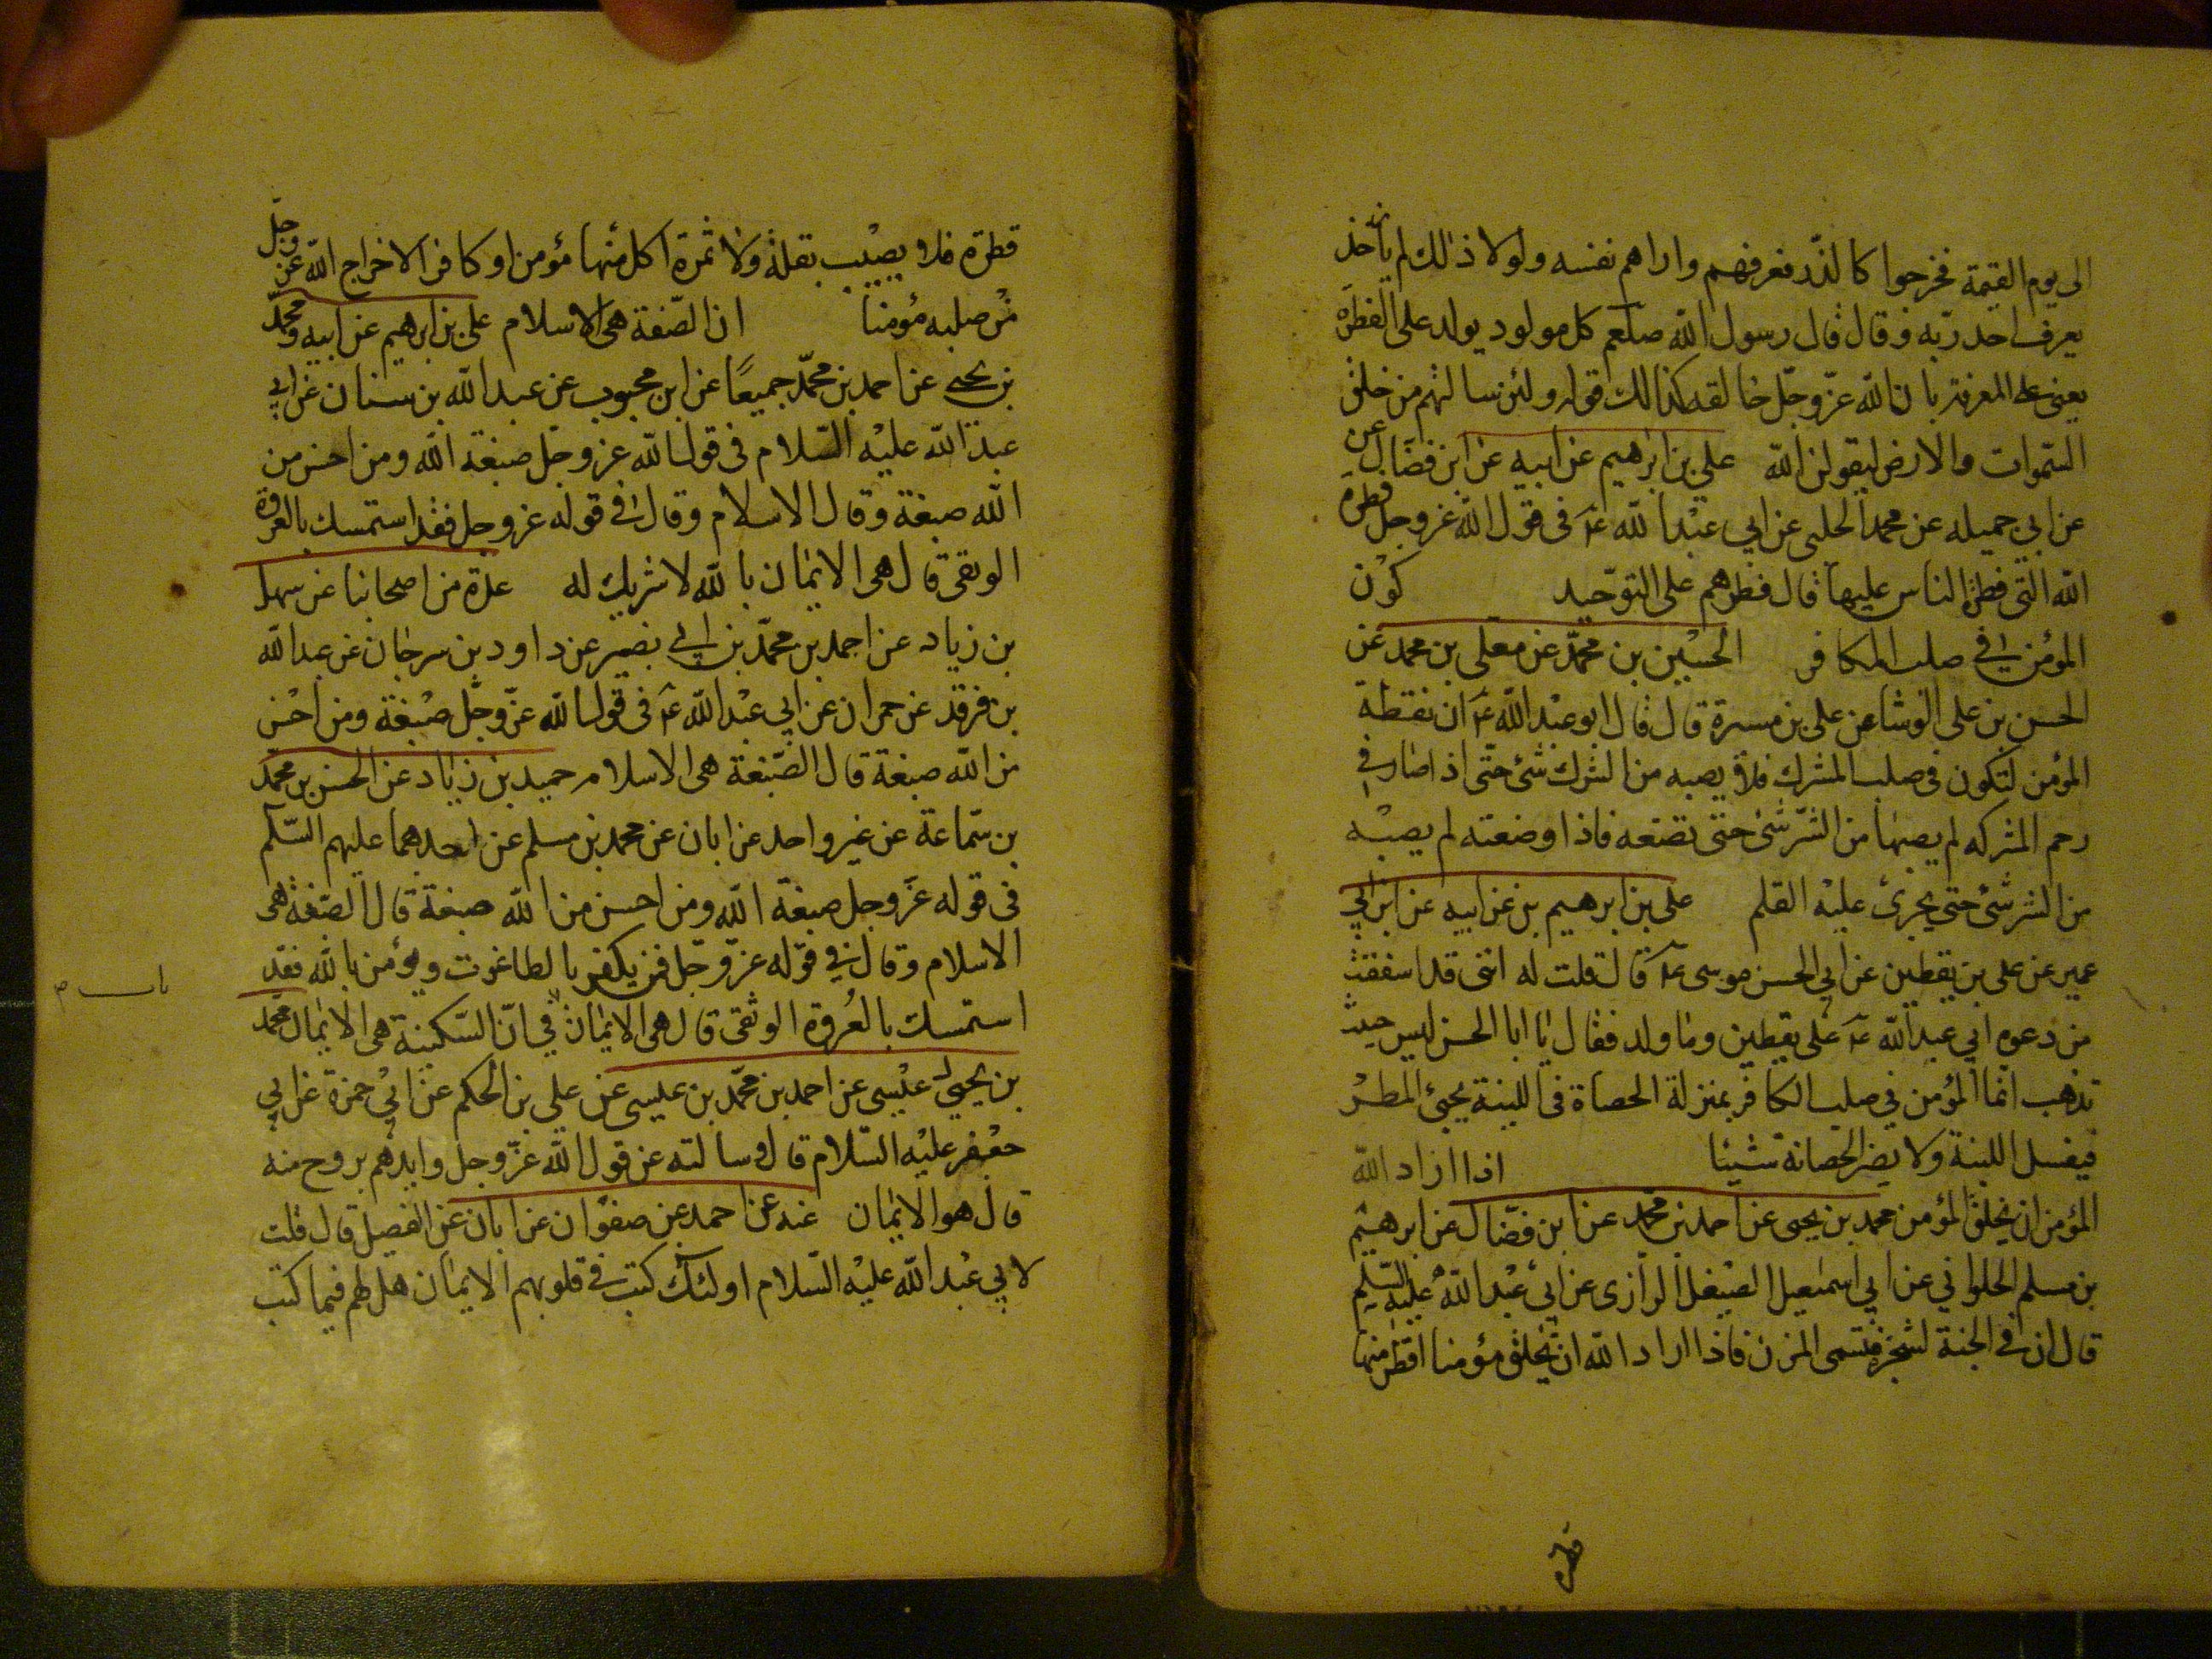 الى يوم القيمة فخرجوا كالذر فعرفهم واراهم نفسه ولولا ذلك لم ياخذ
يعرف احد ربه وقال قال رسول الله صلعم كل مولود يولد على الفطرة
يعنى على المعرفة بان الله عز وجل خالقه كذالك قوله ولئن سالتهم من خلق
السموات والارض ليقولن الله على بن ابرهيم عن ابيه عن ابن فضال عن
عن ابي جميله عن محمد الحلبى عن ابي عبد الله ع فى قول الله عز وجل فطرة
الله التى فطر الناس عليها قال فطرهم على التوحيد كون
المؤمن في صلب الكافر الحسين بن محمد عن معلى بن محمد عن
الحسن بن على الوشا عن على بن ميسرة قال قال ابو عبد الله ع ان نقطة
المؤمن لتكون فى صلب المشرك فلا يصبه من الشرك شئ حتى اذا صار في
رحم المشركه لم يصبها من الشر شئ حتى تضعه فاذا وضعته لم يصبه
من الشر شئ حتى يجرى عليه القلم على بن ابرهيم بن عن ابيه عن ابن ابي
عمير عن على بن يقطين عن ابي الحسن موسى ع قال قلت له انى قد اسفقت
من دعوه ابي عبد الله ع على يقطين وما ولد فقال يا ابا الحسن ليس حيث
تذهب انما المؤمن في صلب الكافر بمنزلة الحصاة فى اللبنة يجئ المطر
فيغسل اللبنة ولا يضر الحصانة شيئا اذا اراد الله
المؤمن ان يخلق المؤمن محمد بن يحيى عن احمد بن محمد عن ابن فضال عن ابرهيم
بن مسلم الحلواني عن ابي اسمعيل الصيقل الرازى عن ابى عبد الله عليه السلم
قال ان في الجنة لشجرة تسمى المزن فاذا اراد الله ان يخلق مؤمنا اقطر منها
قطره
قطرة فلا يصيب بقلة ولا ثمرة اكل منها مؤمن او كافر الا خراج الله عز وجل
من صلبه مؤمنا ان الصبغة هى الاسلام على بن ابرهيم عن ابيه ومحمد
بن يحيى عن احمد بن محمد جميعا عن ابن محبوب عن عبد الله بن سنان عن ابي
عبد الله عليه السلام فى قول الله عز وجل صبغة الله ومن احسن من
الله صبغة وقال الاسلام وقال في قوله عز وجل فقد استمسك بالعروة
الوثقى قال هى الايمان بالله لا شريك له عدة من اصحابنا عن سهل
بن زياد عن احمد بن محمد بن ابي نصير عن داود بن سرحان عن عبد الله
بن فرقد عن حمران عن ابي عبد الله ع فى قول الله عز وجل صبغة ومن احسن
من الله صبغة قال الصبغة هى الاسلام حميد بن زياد عن الحسن بن محمد
بن سماعة عن غير واحد عن ابان عن محمد بن مسلم عن احدهما عليهم السلم
فى قوله عز وجل صبغة الله ومن احسن من الله صبغة قال الصبغة هى
الاسلام وقال في قوله عز وجل فمن يكفر بالطاغوت ويؤمن بالله فقد
استمسك بالعروة الوثقى قال هى الايمان في ان السكينة هى الايمان محمد
بن يحيى عيسى عن احمد بن محمد بن عيسى عن على بن الحكم عن ابي حمزة عن ابي
جعفر عليه السلام قال وسالته عن قول الله عز وجل وايدهم بروح منه
قال هو الايمان عنه عن احمد عن صفوان عن ابان عن الفصيل قال قلت
لابي عبد الله عليه السلام اولئك كتب في قلوبهم الايمان هل لهم فيما كتب
باب